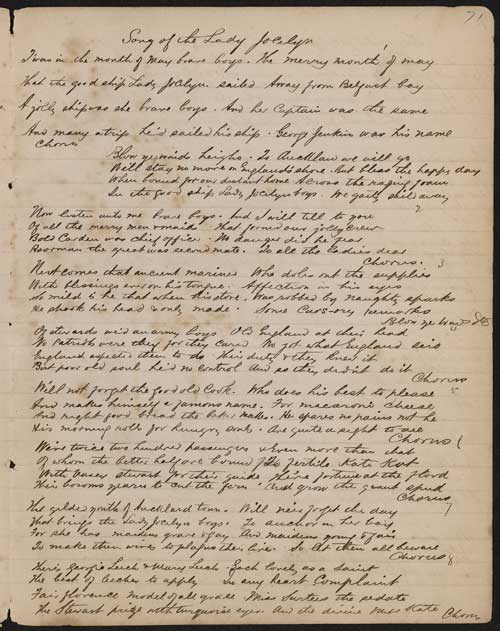 71
Song of the Lady Jocelyn
1
T'was in the month of May brave boys. The merry month of may
That the good ship Lady Jocelyn. sailed Away from Belfast bay
A jolly ship was she brave boys. And her Captain was the same
And many a trip he'd sailed his ship. George Jenkins was his name
Chorus
Blow ye winds heigho; To Aucklan we will go
We'll stay no more in England's shore. But bless the happy day
When bound for our distant home Across the raging foam
In the good ship Lady Jocelyn boys. We gaily sailed away
2
Now listen unto me brave boys. And I will tell to you
Of all the merry men & maids. That formed our jolly crew
Bold Carden was chief officer. No danger did he fear
the great was second mate. To all the Ladies dear
Chorus. 3
Next comes that ancient mariner Who doles out the supplies
With blessings ever on his tongue. Affection in his eyes
So mild is he that when His store. Was robbed by naughty sparks
He shook his head & only made. Some Curs-ory remarks
Blow ye winds &c
Of stewards we'd an army boys Old England at their head
No Patriots were they for they cared No jot what England said
England expected them to do Their duty & they knew it
But poor old soul he'd no control And so they didn't do it
Chorus
5
We'll not forget the good old Cook. Who does his best to please
And makes himself a famous name. For maccaroni cheese
And right good bread the baker makes. He spares no pains not he
His morning rolls for hungry souls. Are quite a sight to see
Chorus 6
We're twice two hundred passengers & Even more than that
Of whom the better half are bound for fertile Kati Kati
With Vesey Stewart for their guide They're fortune at the flood
Their bosoms yearn to cut the fern. And grow the giant spud
Chorus 7
The gilded youth of Auckland town. Will ne'er forget the day
That brings the Lady Jocelyn boys. To anchor in her bay
For she has maidens grave & gay And maidens going to fair
To make them wives to plague their lives. So let them all beware
Chorus 8
There's Georgie Leech & Mary Leech. Each lovely as a saint
The best of leeches to apply In any heart Complaint
Fair florence model of all grace Miss Surtees the sedate
The Stewart pride with turquoise eyes And the divine Miss Kate
Chorus